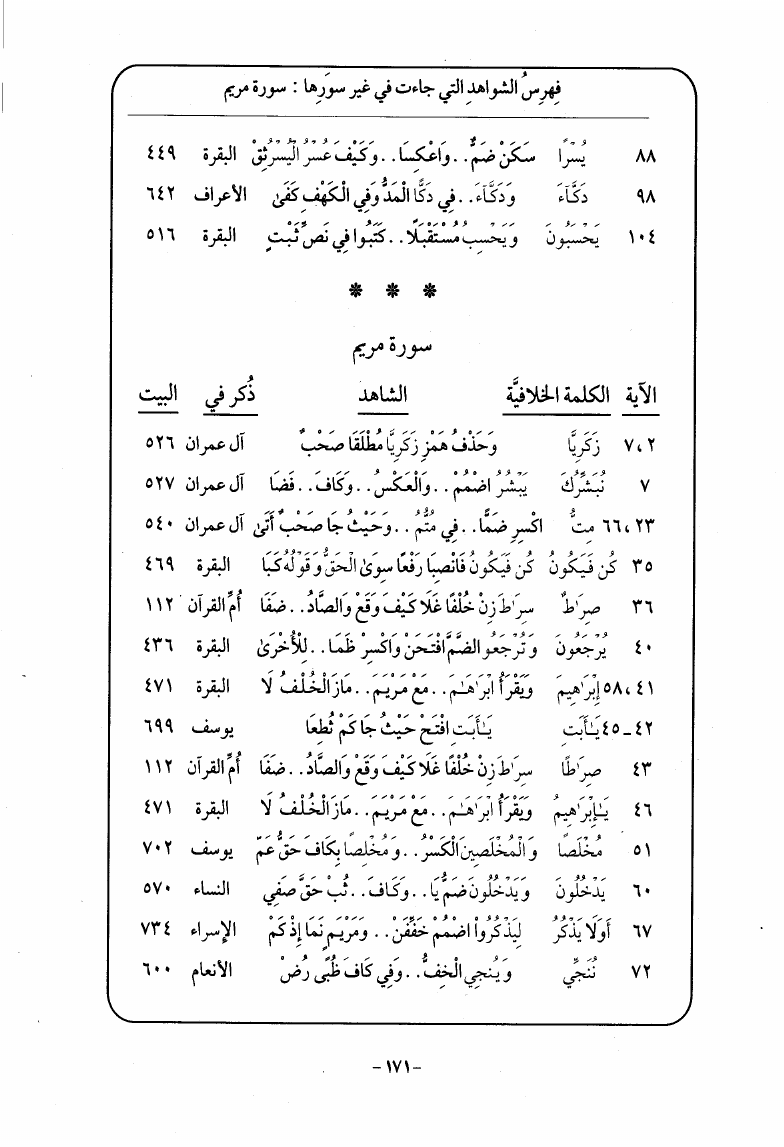 فِهرِسُ الشواهد التي جاءت في غير سوَرِها : سورة مريم
٨٨ يُسْرًا سَكِّنْ ضَمَّ..وَاعْكِسَا..وَكَيْفَ عُسْرُ الْيُسْرُ ثِقْ البقرة ٤٤٩
٩٨ دَكَّآءَ وَدَكَّآءَ..فِي دَكًّا الْمَدُّ وَفِي الْكَهْفِ كَفَىٰ الأعراف ٦٤٢
١٠٤ يَحْسَبُونَ وَيَحْسِبُ مُسْتَقْبَلًا..كَتَبُوا فِي نَصٍّ ثَبْتٍ البقرة ٥١٦
* * *
سورة مريم
الآية الكلمة الخلافيَّة الشاهد ذُكر في البيت
٢، ٧ زَكَرِيَّا وَحَذْفُ هَمْزِ زَكَرِيَّا مُطْلَقًا صَحْبٌ آل عمران ٥٢٦
٧ نُبَشِّرُكَ يَبْشُرُ اضْمُمْ..وَالْعَكْسُ..وَكَافَ..فَضَا آل عمران ٥٢٧
٢٣، ٦٦ مِتُّ اكْسِرِ ضَمًّا..فِي مُتُّمُ..وَحَيْثُ جَا صَحْبٌ أَتَىٰ آل عمران ٥٤٠
٣٥ كُن فَيَكُونُ كُن فَيَكُونُ فَانْصِبَا رَفْعًا سِوَى الْحَقُّ وَقَوْلُهُ كَبَا البقرة ٤٦٩
٣٦ صِرَٰطٌ سِرَٰطَ زِنْ خُلْفًا غَلَا كَيْفَ وَقَعْ وَالصَّادُ..ضَفَا أُمِّ القرآن ١١٢
٤٠ يُرْجَعُونَ وَتُرْجَعُو الضَّمَّ افْتَحَنْ وَاكْسِرْ ظَمَا..لِلْأُخْرَىٰ البقرة ٤٣٦
٤١، ٥٨ إِبْرَٰهِيمَ وَيَقْرَأُ ابْرَٰهَـٰمَ..مَعْ مَرْيَمَ..مَازَ الْخُلْفُ لَا البقرة ٤٧١
٤٢-٤٥ يَـٰٓأَبَتِ يَـٰٓأَبَتِ افْتَحْ حَيْثُ جَا كَمْ ثُطِعَا يوسف ٦٩٩
٤٣ صِرَٰطًا سِرَٰطَ زِنْ خُلْفًا غَلَا كَيْفَ وَقَعْ وَالصَّادُ..ضَفَا أُمِّ القرآن ١١٢
٤٦ يَـٰٓإِبْرَٰهِيمُ وَيَقْرَأُ ابْرَٰهَـٰمَ..مَعْ مَرْيَمَ..مَازَ الْخُلْفُ لَا البقرة ٤٧١
٥١ مُخْلَصًا وَالْمُخْلَصِينَ الْكَسْرُ..وَمُخْلِصًا بِكَافَ حَقُّ عَمّ يوسف ٧٠٢
٦٠ يَدْخُلُونَ وَيَدْخُلُونَ ضَمُّ يَا..وَكَافَ..ثُبْ حَقَّ صَفِي النساء ٥٧٠
٦٧ أَوَلَا يَذْكُرُ لِيَذْكُرُوا اضْمُمْ خَفِّفَنْ..وَمَرْيَمٍ نَمَا إِذْ كَمْ الإسراء ٧٣٤
٧٢ نُنَجِّي وَيُنْجِي الْخِفُّ..وَفِي كَافَ ظُبًى رُضْ الأنعام ٦٠٠
-١٧١-